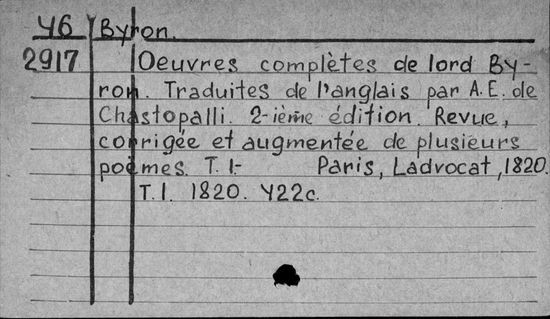 У6 Byron.
2917 Oeuvres complètes de lord By-
ron. Traduites de l'anglais par A.E. de
Chastopalli. 2-ième édition. Revue,
corrigée et augmentée de plusieurs
poèmes. T. I.- Paris, Ladvocat, 1820.
T.I. 1820. 422c.